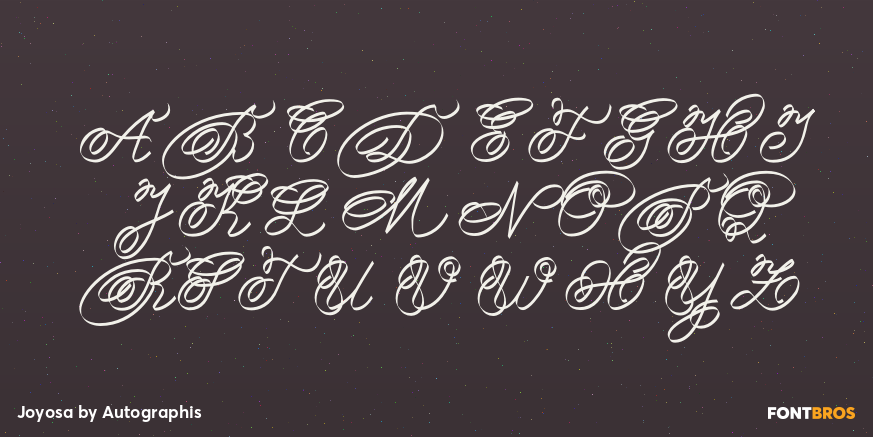 A B C D E F G H I
J K L M N O P Q
R S T U V W X Y Z
Joyosa by Autographis
FONTBROS